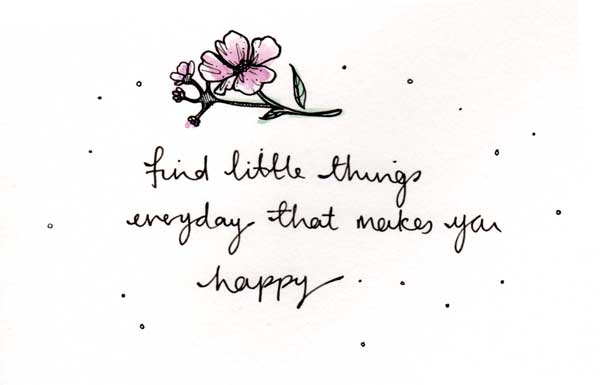 find little things
everyday that makes you
happy.